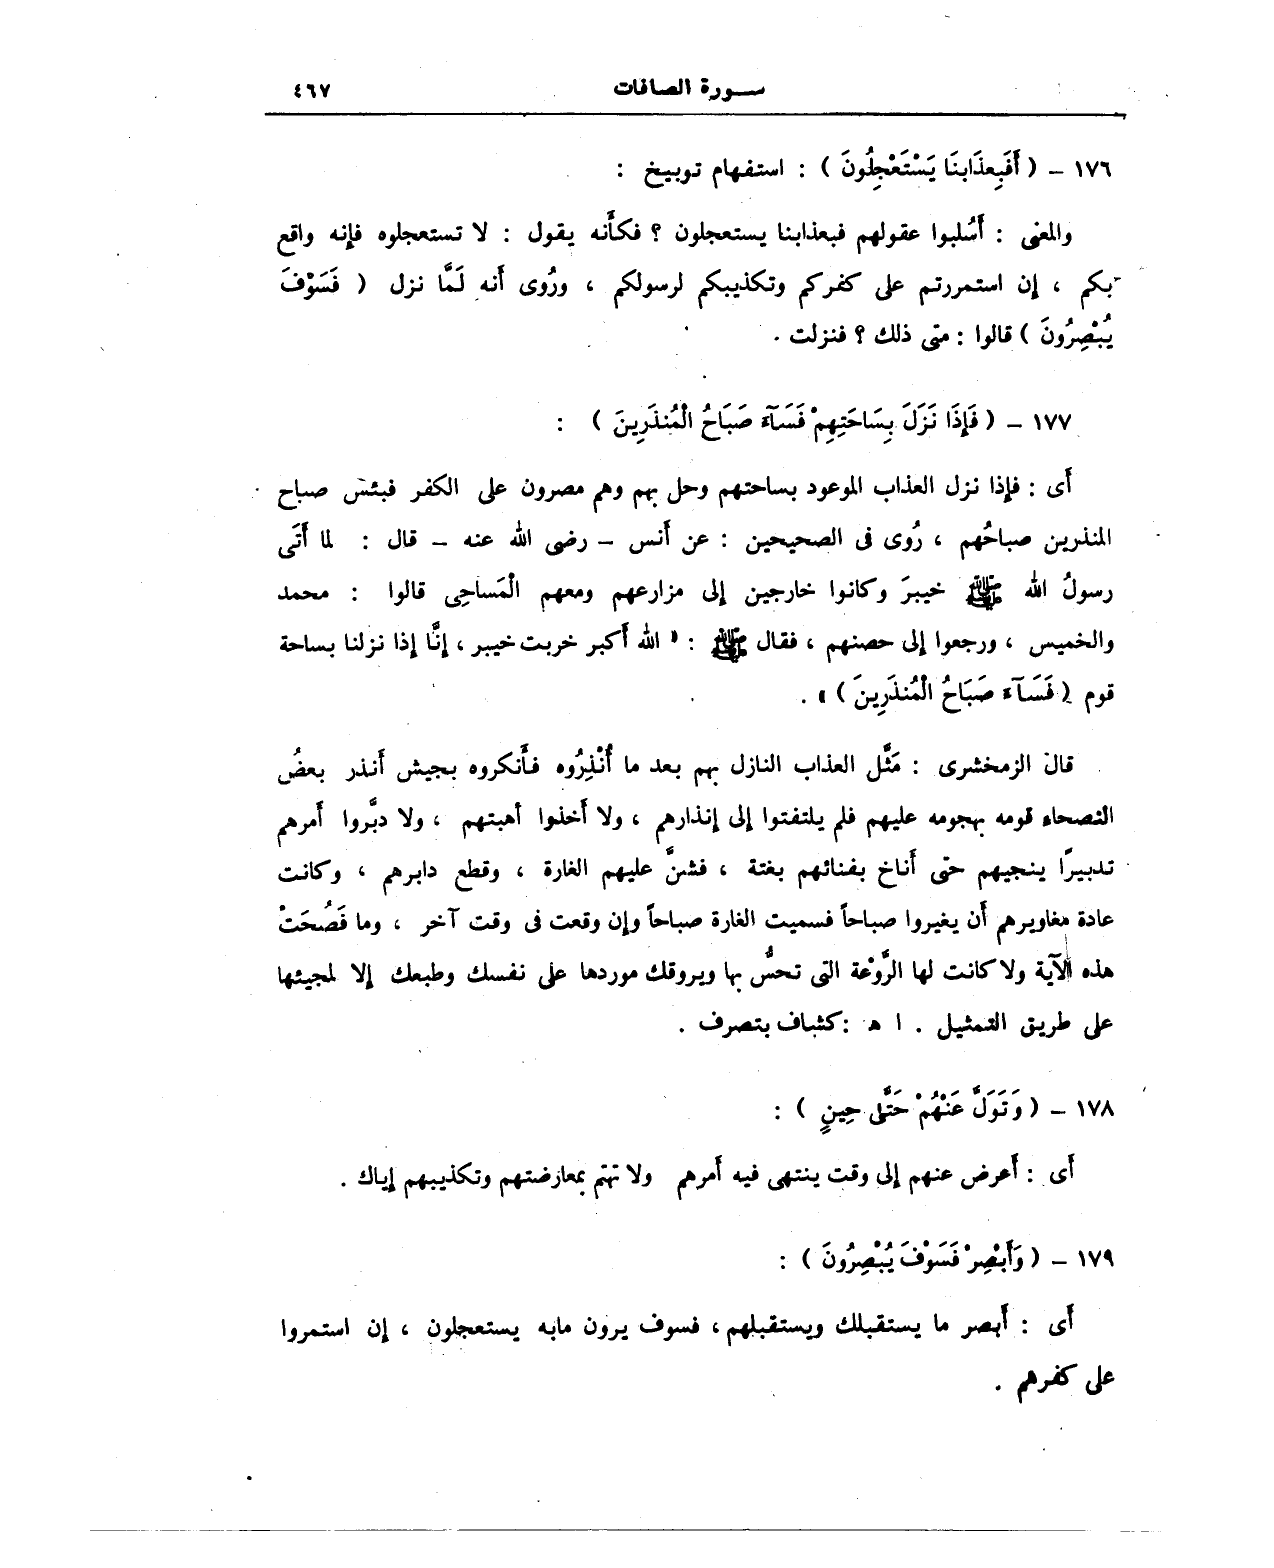 سورة الصافات ٤٦٧
١٧٦ – ( أَفَبِعَذَابِنَا يَسْتَعْجِلُونَ ) : استفهام توبيخ :
والمعنى : أَسُلبوا عقولهم فبعذابنا يستعجلون ؟ فكأَنه يقول : لا تستعجلوه فإنه واقع
بكم ، إن استمررتم على كفركم وتكذيبكم لرسولكم ، ورُوى أَنه لَمَّا نزل ( فَسَوْفَ
يُبْصِرُونَ ) قالوا : متى ذلك ؟ فنزلت .
١٧٧ – ( فَإِذَا نَزَلَ بِسَاحَتِهِمْ فَسَآءَ صَبَاحُ الْمُنذَرِينَ ) :
أَى : فإذا نزل العذاب الموعود بساحتهم وحل بهم وهم مصرون على الكفر فبئس صباح
المنذرين صباحُهم ، رُوى فى الصحيحين : عن أَنس – رضى الله عنه – قال : لما أَتَى
رسولُ الله ﷺ خيبرَ وكانوا خارجين إلى مزارعهم ومعهم الْمَساحِى قالوا : محمد
والخميس ، ورجعوا إلى حصنهم ، فقال ﷺ : « الله أَكبر خربت خيبر ، إنَّا إذا نزلنا بساحة
قوم ( فَسَآءَ صَبَاحُ الْمُنذَرِينَ ) » .
قال الزمخشرى : مَثَّل العذاب النازل بهم بعد ما أُنْذِرُوه فأَنكروه بجيش أَنذر بعضُ
النصحاء قومه بهجومه عليهم فلم يلتفتوا إلى إنذارهم ، ولا أخذوا أهبتهم ، ولا دبَّروا أَمرهم
تدبيرًا ينجيهم حتى أَناخ بفنائهم بغتة ، فشنَّ عليهم الغارة ، وقطع دابرهم ، وكانت
عادة مغاويرهم أَن يغيروا صباحاً فسميت الغارة صباحاً وإن وقعت فى وقت آخر ، وما فَصُحَتْ
هذه الآية ولا كانت لها الرَّوْعة التى تحسُّ بها ويروقك موردها على نفسك وطبعك إلا لمجيئها
على طريق التمثيل . ا ه : كشاف بتصرف .
١٧٨ – ( وَتَوَلَّ عَنْهُمْ حَتَّى حِينٍ ) :
أَى : أَعرض عنهم إلى وقت ينتهى فيه أَمرهم ولا تهتم بمعارضتهم وتكذيبهم إياك .
١٧٩ – ( وَأَبْصِرْ فَسَوْفَ يُبْصِرُونَ ) :
أَى : أَبصر ما يستقبلك ويستقبلهم ، فسوف يرون مابه يستعجلون ، إن استمروا
على كفرهم .